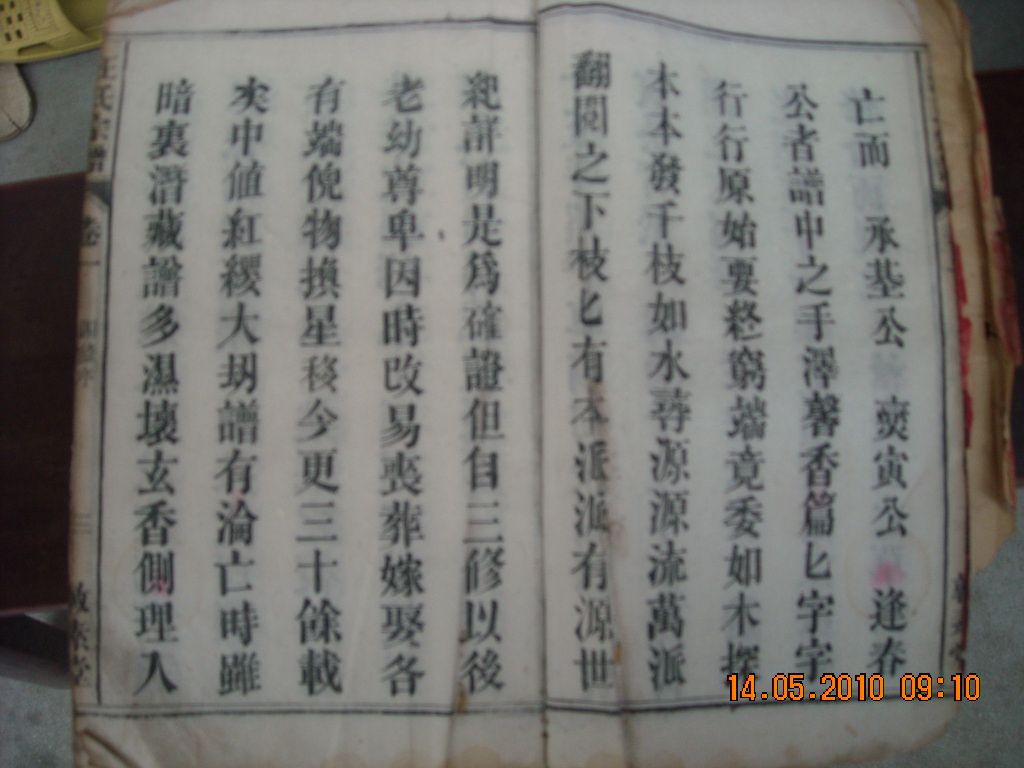 亡而 承基公 奭寅公 逢春
公者譜中之手澤馨香篇匕字字
行行原始要終窮端竟委如木探
本本發千枝如水尋源源流萬派
翻閱之下枝匕有本派派有源世
紀詳明是爲確證但自三修以後
老幼尊卑因時改易喪葬嫁娶各
有端倪物換星移今更三十餘載
矣中值紅纓大刼譜有淪亡時雖
暗裏潛藏譜多濕壞玄香側理入
汪氏宗譜 卷一
14.05.2010 09:10